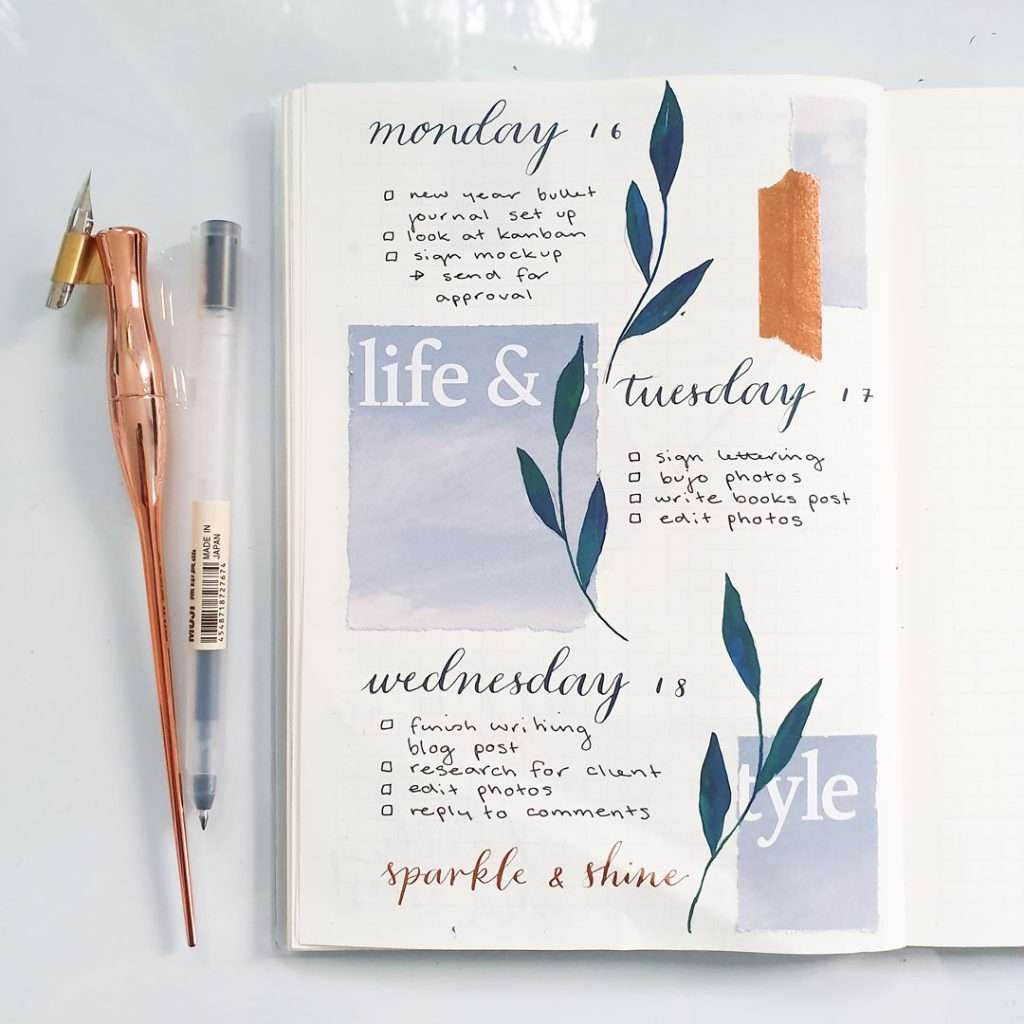 monday 16
□ new year bullet
journal set up
□ look at kanban
□ sign mockup
→ send for
approval
life & s
tuesday 17
□ sign lettering
□ bujo photos
□ write books post
□ edit photos
wednesday 18
□ finish writing
blog post
□ research for client
□ edit photos
□ reply to comments
tyle
sparkle & shine
MUJI
MADE IN
JAPAN
4548718727674